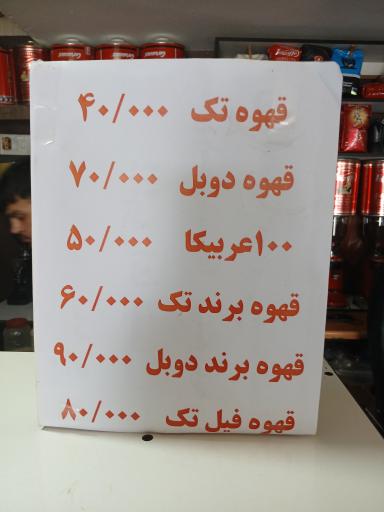 قهوه تک ۴۰/۰۰۰
قهوه دوبل ۷۰/۰۰۰
۱۰۰عربیکا ۵۰/۰۰۰
قهوه برند تک ۶۰/۰۰۰
قهوه برند دوبل ۹۰/۰۰۰
قهوه فیل تک ۸۰/۰۰۰